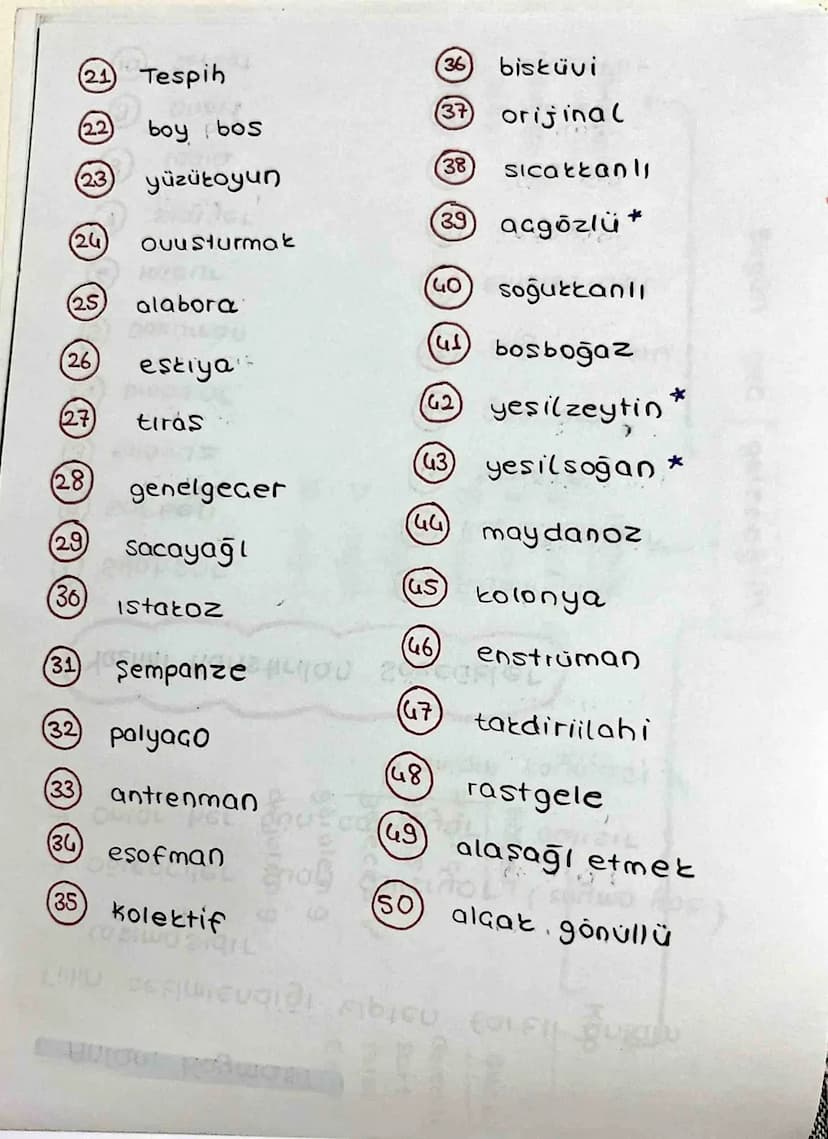 21 Tespih
22 boy bos
23 yüzükoyun
24 ovuşturmak
25 alabora
26 eşkiya
27 tıraş
28 genelgeçer
29 sacayağı
30 ıstakoz
31 şempanze
32 palyaço
33 antrenman
34 eşofman
35 kolektif
36 bisküvi
37 orijinal
38 sıcakkanlı
39 açgözlü *
40 soğukkanlı
41 boşboğaz
42 yeşilzeytin *
43 yeşilsoğan *
44 maydanoz
45 kolonya
46 enstrüman
47 takdiriilahi
48 rastgele
49 alaşağı etmek
50 alçak gönüllü